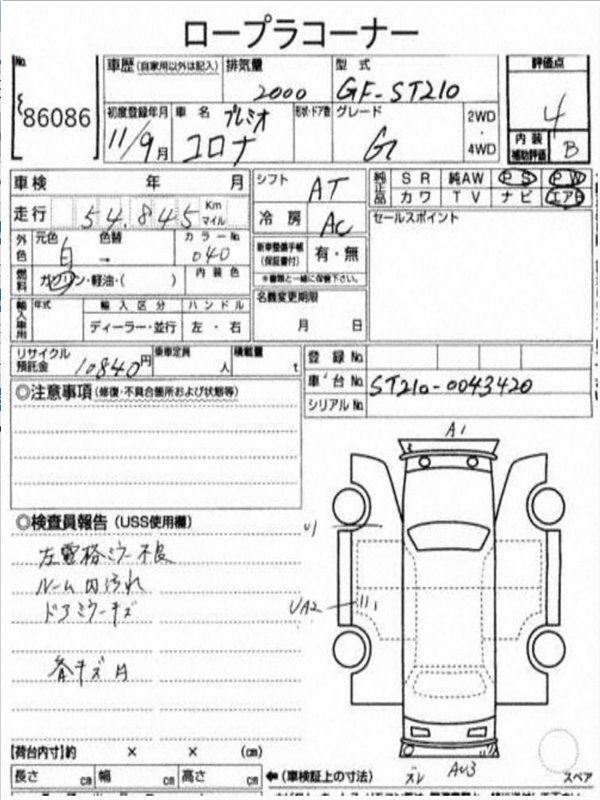 ロープラコーナー
No. 86086
車歴 (自家用以外は記入) 排気量 2000 型式 GF-ST210 評価点 4
初度登録年月 11/9月 車名 プレミオ コロナ 形状・ドア数 グレード G 2WD・4WD 内装補助評価 B
車検 年 月 シフト AT 純正品 SR 純AW PS PW
カワ TV ナビ エアB
走行 54,845 Km マイル 冷房 AC セールスポイント
外色 元色 白 色替 → カラーNo. 040 新車整備手帳 (保証書付) 有・無
※書類と一緒に保管下さい。
燃料 ガソリン・軽油・( ) 内装色 名義変更期限
月 日
輸入車用 年式 輸入区分 ハンドル
ディーラー・並行 左・右
リサイクル預託金 10840円 乗車定員 人 積載量 t 登録No.
車台No. ST210-0043420
シリアルNo.
◎注意事項 (修復・不具合箇所および状態等)
A1
◎検査員報告 (USS使用欄)
U1
左電格ミラー不良
ルーム内汚れ
UA2
ドアミラーキズ
各キズ凹
【荷台内寸】約 × × (cm)
長さ cm 幅 cm 高さ cm
←(車検証上の寸法) ズレ AU3 スペア